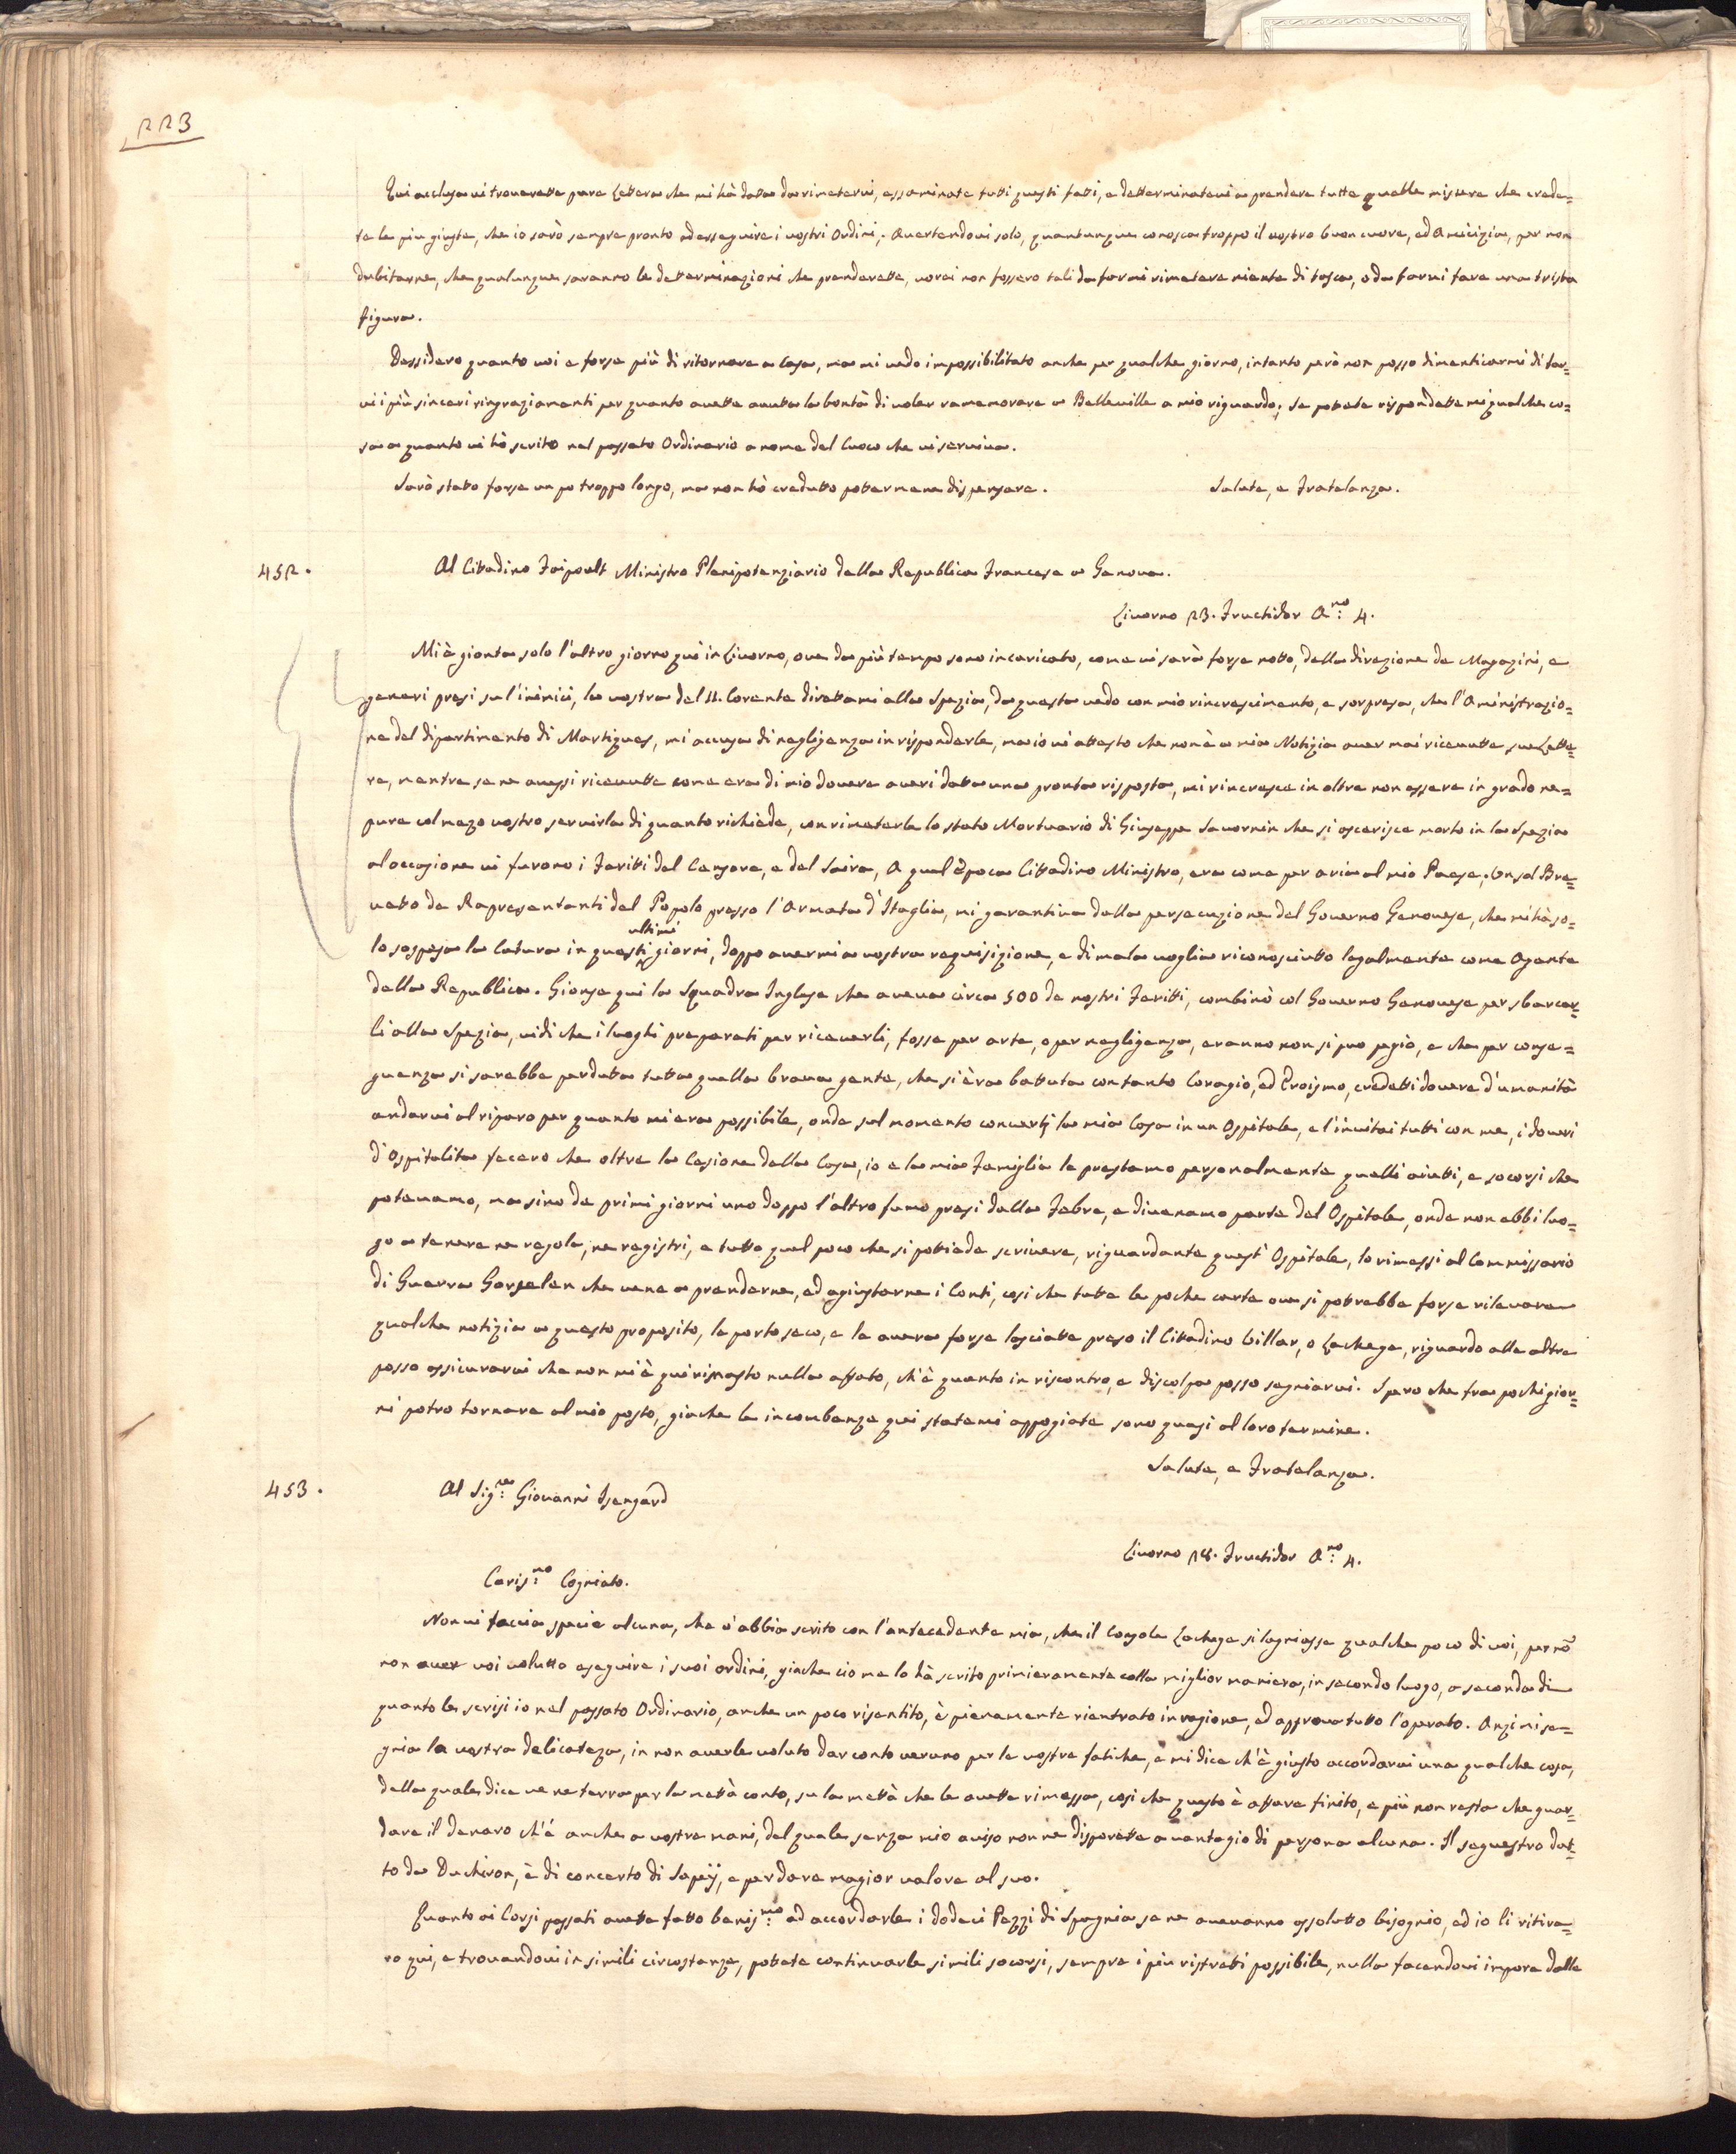 223
Qui acclusa vi troverette pure Lettera che mi hà datta da rimetervi, essaminate tutti questi fatti, e detterminatevi a prendere tutte quelle misure che crede=
te le più giuste, che io sarò sempre pronto ad esseguire i vostri Ordini; Avertendovi solo, quantunque conosca troppo il vostro buon cuore, ed Amicizia, per non
dubitarne, che qualunque saranno le detterminazioni che prenderette, vorei non fossero tali da farmi rimetere niente di tasca, o da farvi fare una trista
figura.
Dessidero quanto voi e forse più di ritornare a Casa, ma mi vedo impossibilitato anche per qualche giorno, intanto però non posso dimenticarmi di far=
vi i più sinceri ringraziamenti per quanto avette avutta la bontà di voler ramemorare a Belleville a mio riguardo; se potete rispondette mi qualche co=
sa a quanto vi hò scrito nel passato Ordinario a nome del Cuoco che vi serviva.
Sarò statto forse un po troppo longo, ma non hò credutto pottermene dispensare. Salute, e Fratelanza.
452. Al Cittadino Faipoult Ministro Plenipotenziario della Republica Francese a Genova.
Livorno 23. Fructidor An:no 4.
Mi è gionta solo l'altro giorno quì in Livorno, ove da più tempo sono incaricato, come vi sarà forse notto, della direzione de Magazini, e
generi presi su l'inimici, la vostra del 11. Corente direttami alla Spezia, da questa vedo con mio rincrescimento, e sorpresa, che l'Aministrazio=
ne del dipartimento di Martigues, mi accusa di negligenza in risponderle, ma io vi attesto che non è a mia Notizia aver mai ricevutte sue Lette=
re, mentre se ne avessi ricevutte come era di mio dovere averi datta una pronta risposta, mi rincresce in oltre non essere in grado ne=
pure col mezo vostro servirla di quanto richiede, con rimeterle lo stato Mortuario di Giuseppe Savornin che si asserisce morto in la Spezia
al occasione vi furono i Feritti del Censore, e del Saira, A qual Epoca Cittadino Ministro, era come per aria al mio Paese. Un sol Bre=
vetto de Rapresentanti del Popolo presso l'Armata d'Itaglia, mi garantiva dalla persecuzione del Governo Genovese, che mi hà so=
lo sospesa la Catura in questi ultimi giorni, doppo avermi a vostra requisizione, e di mala voglia riconosciutto legalmente come Agente
della Republica. Gionse qui la Squadra Inglese che aveva circa 500 de nostri Feritti, combinò col Governo Genovese per sbarcar=
li alla Spezia, vidi che i luoghi preparati per riceverli, fosse per arte, o per negligenza, eranno non si può pegio, e che per conse=
guenza si sarebbe perdutta tutta quella brava gente, che si èra battuta con tanto Coragio, ed Eroismo, credetti dovere d'umanità
andarvi al riparo per quanto mi era possibile, onde sul momento convertj la mia Casa in un Ospitale, e l'invitai tutti con me, i doveri
d'Ospitalita fecero che oltre la Cesione della Casa, io e la mia Famiglia le prestamo personalmente quelli aiutti, e socorsi che
potevamo, ma sino de primi giorni uno doppo l'altro fumo presi dalla Febre, e divenamo parte del Ospitale, onde non ebbi luo=
go a tenere ne regola, ne registri, e tutto quel poco che si pottiede scrivere, riguardante quest'Ospitale, lo rimessi al Commissario
di Guerra Gosselen che vene a prenderne, ed agiustarne i Conti, così che tutte le poche carte ove si potrebbe forse rilevare
qualche notizia a questo proposito, le porto seco, e le avera forse lasciatte preso il Cittadino Villar, o Lachege, riguardo alle altre
posso assicurarvi che non mi è quì rimasto nulla affato, ch'è quanto in riscontro, e discolpa posso segniarvi. Spero che fra pochi gior=
ni potro tornare al mio posto, giache le incombenze quì statemi appogiate sono quasi al loro termine.
Salute, e Fratelanza.
453. Al Sig:re Giovanni Isengard
Livorno 28. Fructidor An:no 4.
Caris:mo Cogniato.
Non vi faccia specie alcuna, che v'abbia scrito con l'antecedente mia, che il Console Lachege si lagniasse qualche poco di voi, per nõ
non aver voi volutto eseguire i suoi ordini, giache ciò me lo hà scrito primieramente colla miglior maniera, in secondo luogo, a seconda di
quanto le scrisi io nel passato Ordinario, anche un poco risentito, è pienamente rientrato in ragione, ed approva tutto l'operato. Anzi mi se=
gnia la vostra delicateza, in non averle voluto dar conto veruno per le vostre fatiche, e mi dice ch'è giusto accordarvi una qualche cosa,
della quale dice ve ne terra per la mettà conto, su la mettà che le avette rimessa, così che questo è affare finito, e più non resta che guar=
dare il denaro ch'è anche a vostre mani, del quale senza mio aviso non ne disporette a vantagio di persona alcuna. Il sequestro dat=
to da Duchiron, è di concerto di Sapeij, e per dare magior valore al suo.
Quanto ai Corsi passati avette fatto benis:mo ad accordarle i dodeci Pezzi di Spagnia se ne avevanno assolutto bisognio, ed io li ritire=
ro qui, e trovandovi in simili circostanze, potete continuarle simili socorsi, sempre i più ristretti possibile, nulla facendovi impore dalle